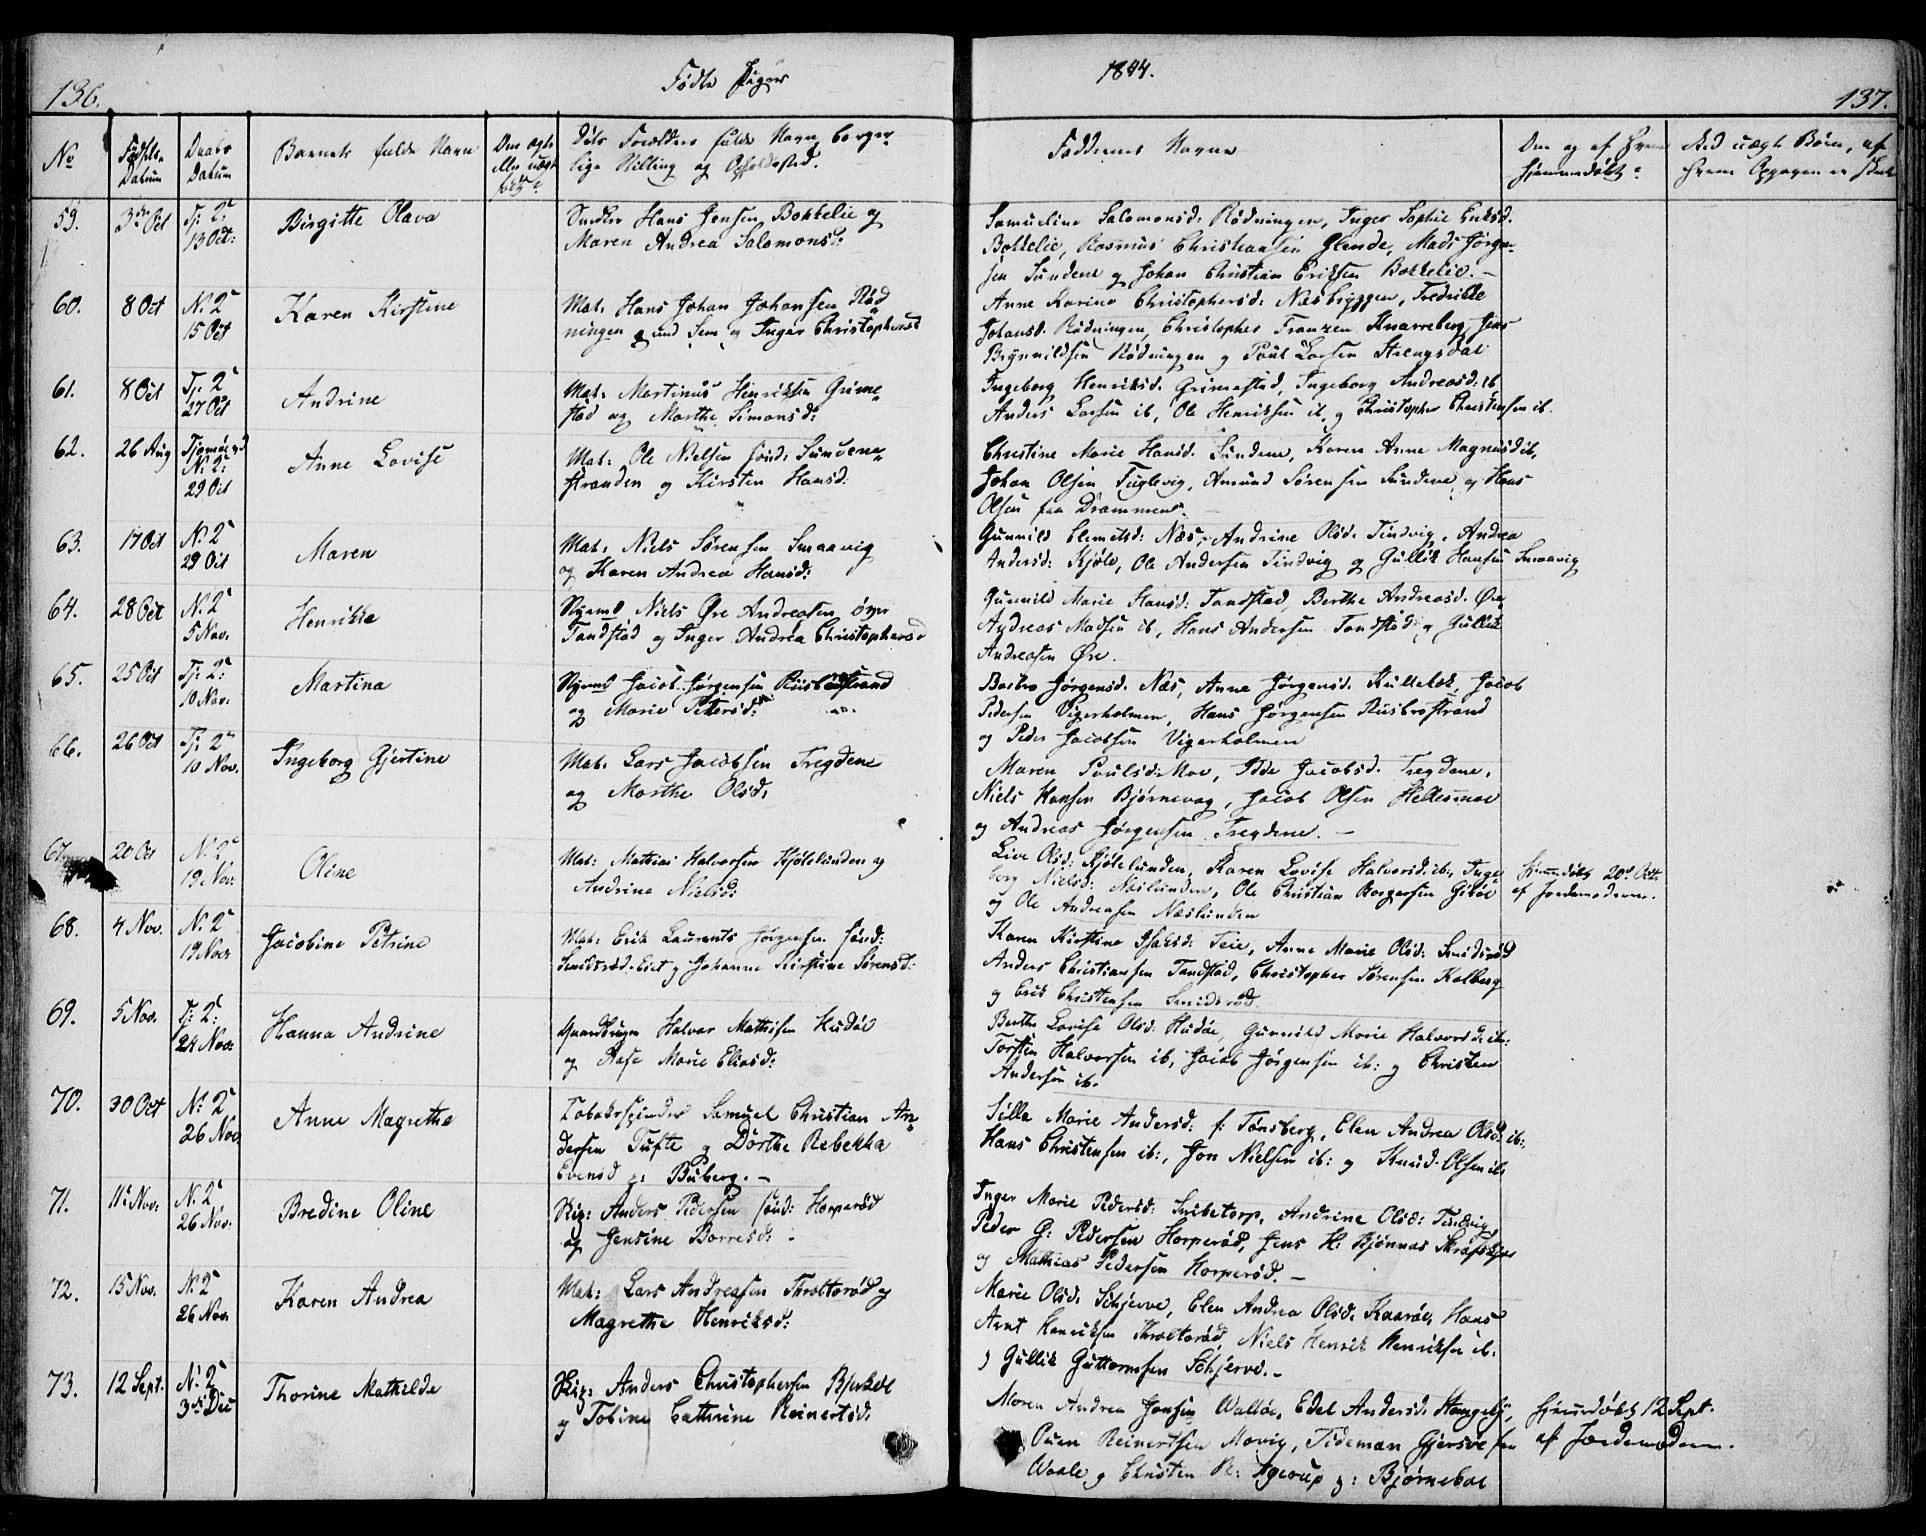 136.
Fødte Piger
1844.
137.
No
Fødsels Datum
Daabs Datum
Barnets fulde Navn
Om ægte eller uægte født?
Dets Forældres fulde Navn, borger-
lige Stilling og Opholdssted.
Faddernes Navne
Om og af hvem
hjemmedøbt?
Ved uægte Børn, af
hvem Opgaven er skeet
59.
3die Oct
Tj: 2:
13 Oct:
Birgitte Olava
Snedker Hans Jensen Bokkelie og
Maren Andrea Salomonsd:
Samueline Salomonsd: Rødningen, Inger Sophie Eriksd.
Bokkelie, Rasmus Christiansen Glende, Mads Jørgen-
sen Sundene og Johan Christian Eriksen Bokkelie. –
60.
8 Oct
N. 2
15 Oct
Karen Kirstine
Mat. Hans Johan Johansen Rød
ningen og Inger Christophersd
Anne Karine Christophersd. Næsbryggen, Fredrikke
Johansd. Rødningen, Christopher Franzen Knarreberg, Jens
Brynnildsen Rødningen og Poul Larsen Stengsdal
61.
8 Oct
Tj. 2
27 Oct
Andrine
Mat. Martinus Henriksen Grime
stad og Marthe Simonsd:
Ingeborg Henriksd. Grimestad, Ingeborg Andreasd: ib
Anders Larsen ib, Ole Henriksen ib. og Christopher Christensen ib.
62.
26 Aug
N. 2:
29 Oct
Anne Lovise
Mat: Ole Nielsen Sundene-
stranden og Kirsten Hansd:
Christine Marie Hansd. Sundene, Karen Anne Magnusd ib,
Johan Olsen Fuglevig, Amund Sørensen Sundene og Hans
Olsen fra Drammen.
63.
17 Oct
N. 2
29 Oct
Maren
Mat: Niels Sørensen Smaavig
og Karen Andrea Hansd:
Gunnild Clemetsd: Næs, Andrine Olsd. Tindvig, Andrea
Andersd: Kjøle, Ole Andersen Tindvig og Gullik Hansen Smaavig
64.
28 Oct
N. 2
5 Nov.
Henrikke
Niels Øre Andreasen
Tandstad og Inger Andrea Christophersd
Gunnild Marie Hansd: Tandstad, Berthe Andreasd. Øre
Andreas Madsen ib, Hans Andersen Tandstad og Gullik
Andreasen Øre.
65.
25 Oct
Tj: 2:
10 Nov.
Martina
Jacob Jørgensen Riisbrostrand
og Marie Petersd:
Barbro Jørgensd. Næs, Anne Jørgensd. Jacob
Pedersen Vigerholmen, Hans Jørgensen Riisbrostrand
og Peder Jacobsen Vigerholmen
66.
26 Oct
Tj: 2
10 Nov.
Ingeborg Gjertine
Mat. Lars Jacobsen Tregdene
og Marthe Olsd.
Maren Poulsd: Moe, Idde Jacobsd. Tregdene,
Niels Hansen Bjørnevag, Jacob Olsen Hellesmoe
og Andreas Jørgensen Tregdene. –
67.
20 Oct
N. 2
19 Nov.
Oline
Mat: Mathias Halvorsen Kjølelunden og
Andrine Nielsd:
Live Olsd: Kjølelunden, Karen Lovise Halvorsd: ib:, Inge
borg Nielsd: Næslunden, Ole Christian Borgersen Gipøe
og Ole Andreasen Næslunden
Hjemmedøbt 20d Oct:
af Jordemoderen.
68.
4 Nov.
N. 2
19 Nov
Jacobine Petrine
Mat: Erik Laurents Jørgensen
Smidsrød og Johanne Kirstine Sørensd:
Karen Kirstine Isaksd: Teie, Anne Marie Olsd: Smidsrød
Anders Christiansen Tandstad, Christopher Sørensen Kolberg
og Erik Christensen Smidsrød
69.
5 Nov.
Tj: 2:
24 Nov:
Hanna Andrine
Gaardbruger Halvor Mathisen Hudøe
og Aase Marie Eliasd:
Berthe Lovise Olsd: Hudøe, Gunnild Marie Halvorsd: ib:
Torsten Halvorsen ib, Jacob Jørgensen ib: og Christen
Andersen ib.
70.
30 Oct
N: 2
26 Nov
Anne Magrethe
Tobakspinder Samuel Christian An
dersen Tufte og Dorthe Rebekka
Evensd Buberg. –
Silla Marie Andersd: f: Tønsberg, Elen Andrea Olsd: ib:
Hans Christensen ib:, Jon Nielsen ib: og Knud Olsen ib
71.
11 Nov.
N: 2
26 Nov:
Bredine Oline
Anders Pedersen Horperød
og Jensine Borresd:
Inger Marie Pedersd: Svibetorp, Andrine Olsd: Tindvig,
Peder G: Pedersen Horperød, Jens H: Bjønnes
og Mathias Pedersen Horperød. –
72.
15 Nov.
N. 2
26 Nov.
Karen Andrea
Mat: Lars Andreasen Throltorød og
Magrethe Henriksd:
Marie Olsd: Schjerve, Elen Andrea Olsd. Kaarøe, Hans
Arnt Henriksen Throltorød, Niels Henrik Henriksen ib.
og Gullik Guttormsen Schjerve. –
73.
12 Sept:
N. 2
3die Dec
Thorine Mathilde
Anders Christophersen Bjerkøe
og Tobine Cathrine Reinertsd.
Maren Andrea Jonsen Valløe, Edel Andersd.
Ouen Reinertsen Movig, Tideman Gjersøe sen
Waale og Christen Agerup og: Bjørneboe
Hjemmedøbt 12 Sept.
af Jordemoderen.